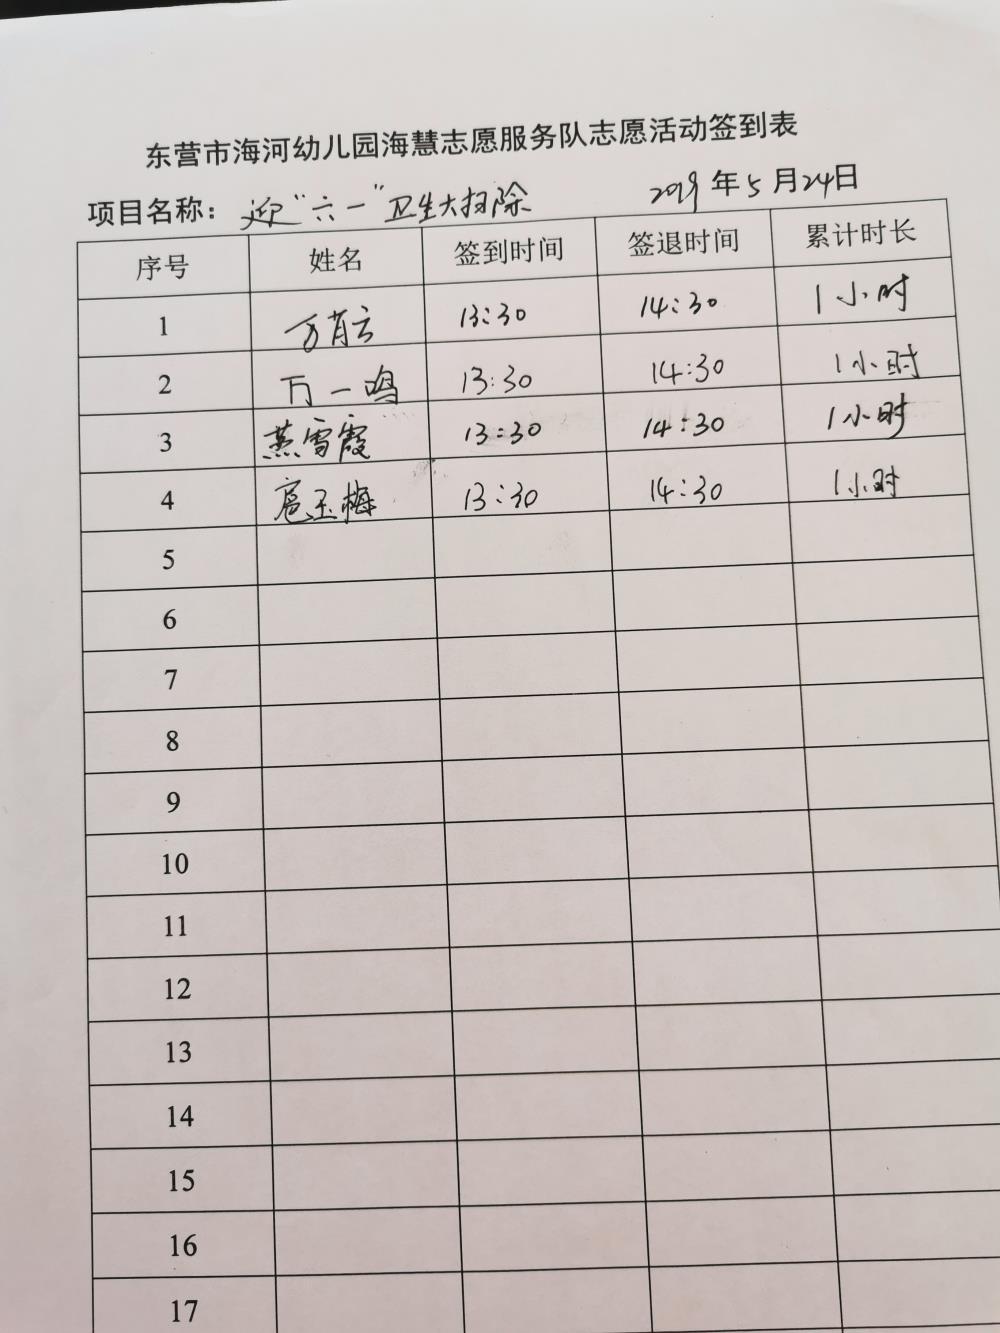 东营市海河幼儿园海慧志愿服务队志愿活动签到表
项目名称：迎“六一”卫生大扫除 2019年5月24日
序号 姓名 签到时间 签退时间 累计时长
1 万肖云 13:30 14:30 1小时
2 万一鸣 13:30 14:30 1小时
3 燕雪霞 13:30 14:30 1小时
4 扈玉梅 13:30 14:30 1小时
5
6
7
8
9
10
11
12
13
14
15
16
17